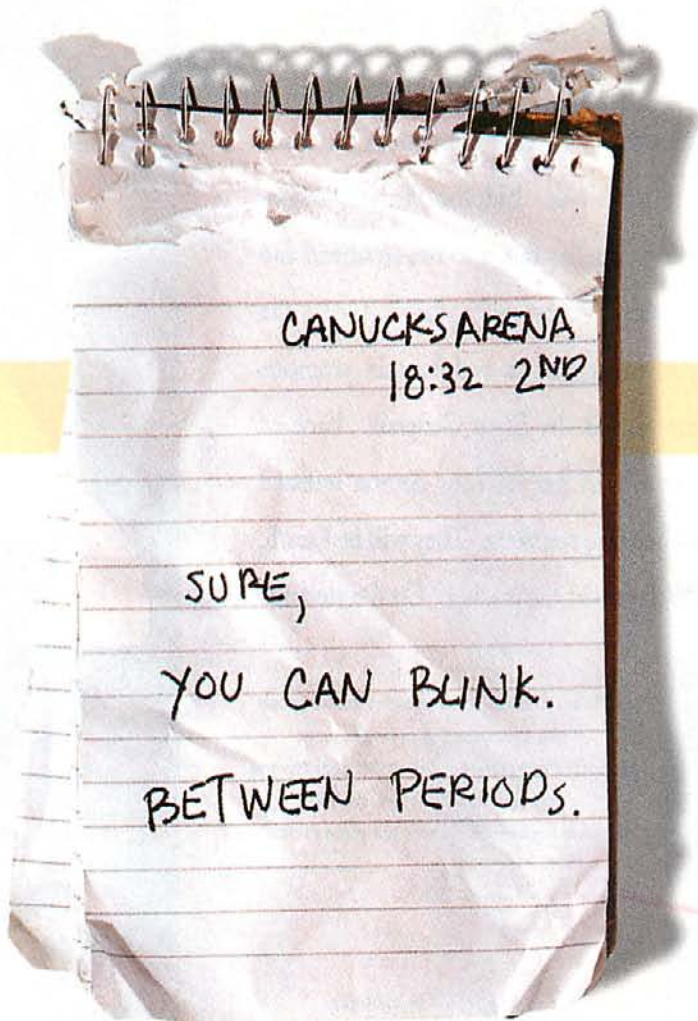 CANUCKS ARENA
18:32 2ND
SURE,
YOU CAN BLINK.
BETWEEN PERIODS.